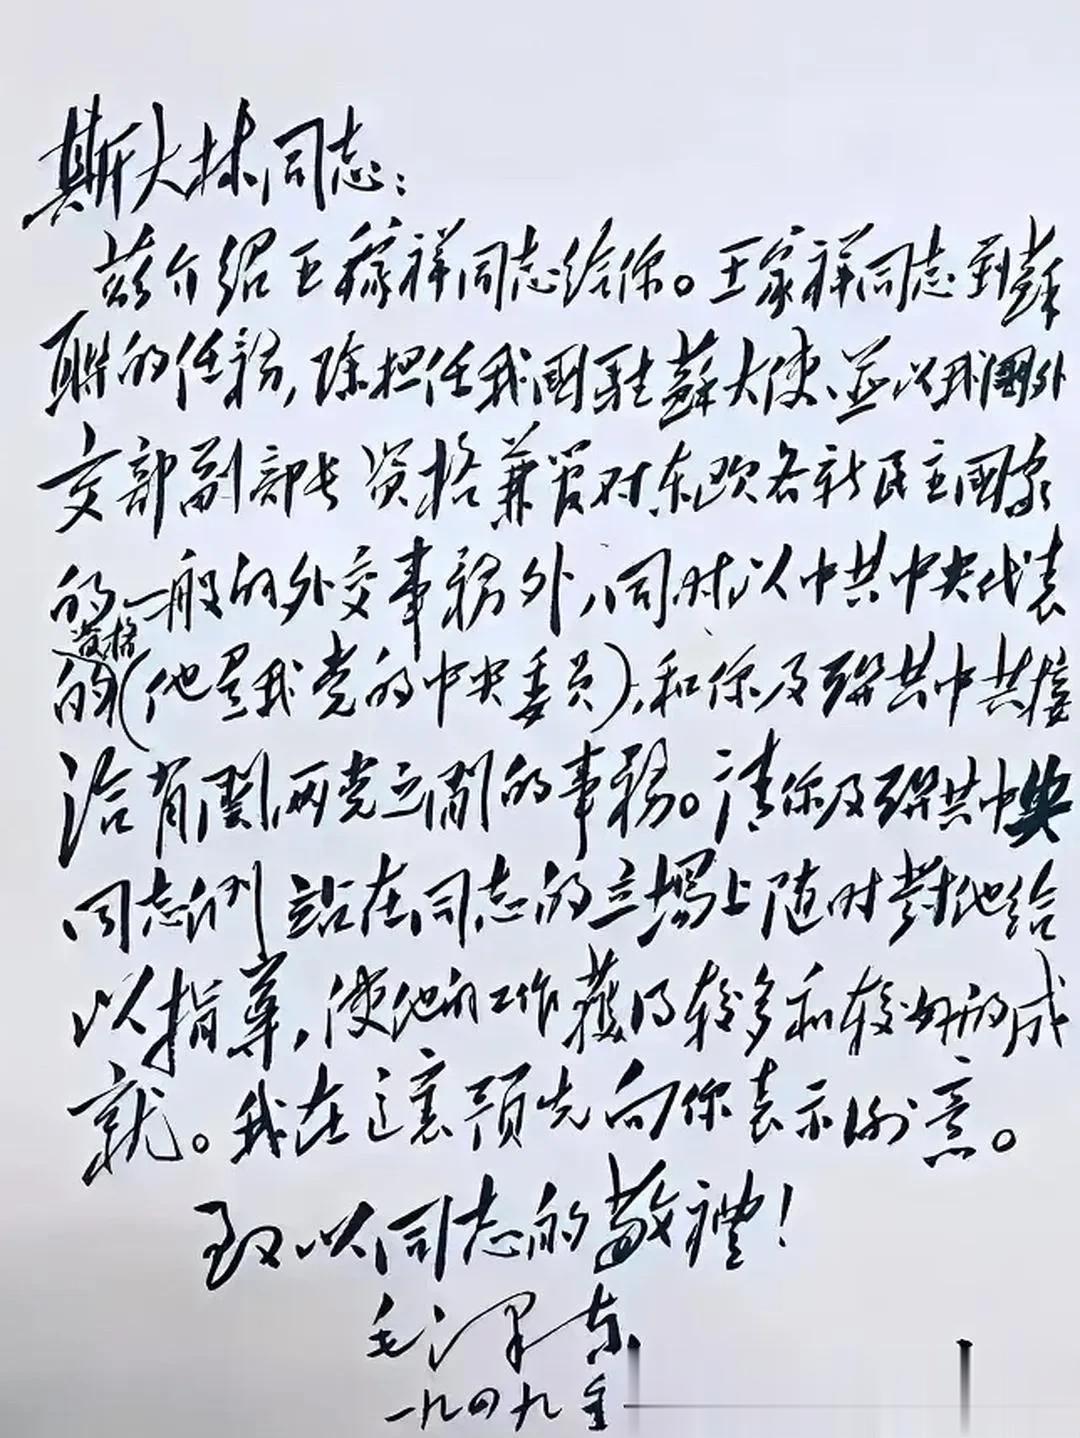 斯大林同志：
兹介绍王稼祥同志给你。王家祥同志到蘇
聯的任務，除担任我國駐蘇大使、並以我國外
交部副部长资格兼管对东欧各新民主國家
的一般的外交事務外，同时以中共中央代表
资格
的(他是我党的中央委员)，和你及聯共中共接
洽有關两党之間的事務。请你及聯共中央
同志们站在同志的立場上随时對他给
以指導，使他的工作獲得较多和较好的成
就。我在這裏预先向你表示谢意。
致以同志的敬禮！
毛泽东
一九四九年